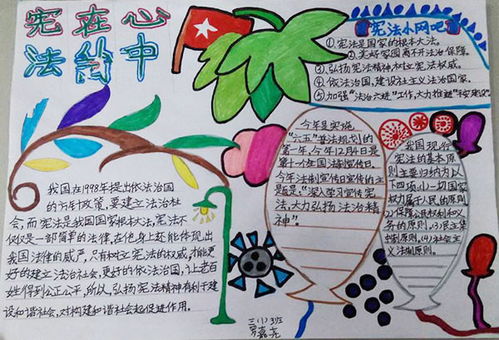 宪在心
法的中
宪法小网吧
①、宪法是国家的根本大法。
②、美好家园离不开法治保障。
③、弘扬宪法精神树立宪法权威。
④、依法治国,建设社会主义法治国家。
⑤、加强“法治六进”工作,大力推进“平安建设”
我国在1998年提出依法治国
的方政策,要建立法治社
会,而宪法是我国国家根本大法,宪法不
仅仅是一部简单的法律,在他身上还能体现出
我国法律的威严,只有树立宪法的权威,才能更
好的建立法治社会,更好的依法治国,让老百
姓得到公正公平,所以,弘扬宪法精神有利于建
设和谐社会,对构建和谐社会起促进作用。
今年是实施
“六五”普法规划的
第一年,今年12月4日是
第十一个全国法制宣传日。
今年法制宣传日宣传的主
题是:“深入学习宣传宪
法,大力弘扬法治精
神”。
我国现行
宪法的基本原
则主要归纳为以
下四项:(1)一切国家
权力属于人民的原则
(2)保障公民权利和义
务的原则;(3)民主集
中制原则,(4)社会主
义法制原则。
三(1)班
罗嘉亮